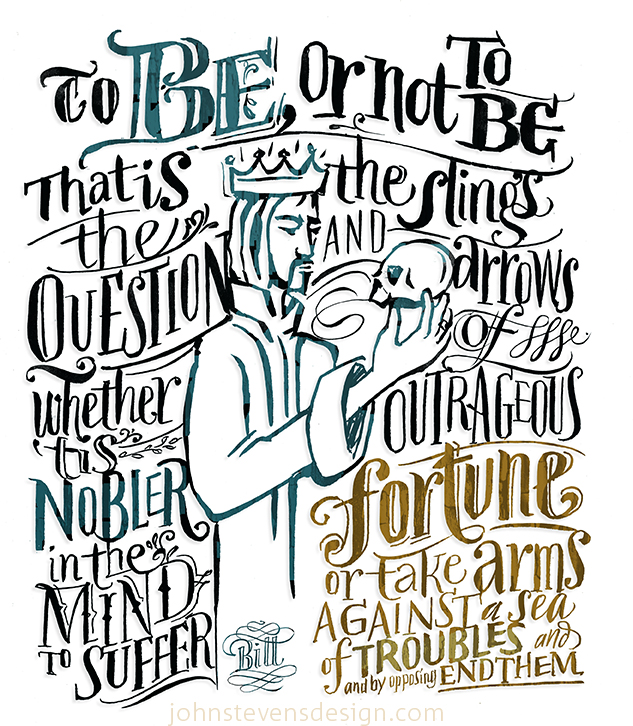 To BE, Or not TO BE
That is
the
QUESTION
whether
'tis
NOBLER
in the
MIND
TO SUFFER
the slings
AND
arrows
of
OUTRAGEOUS
fortune
or take arms
AGAINST a sea
of TROUBLES and
and by opposing END THEM.
Bill
johnstevensdesign.com